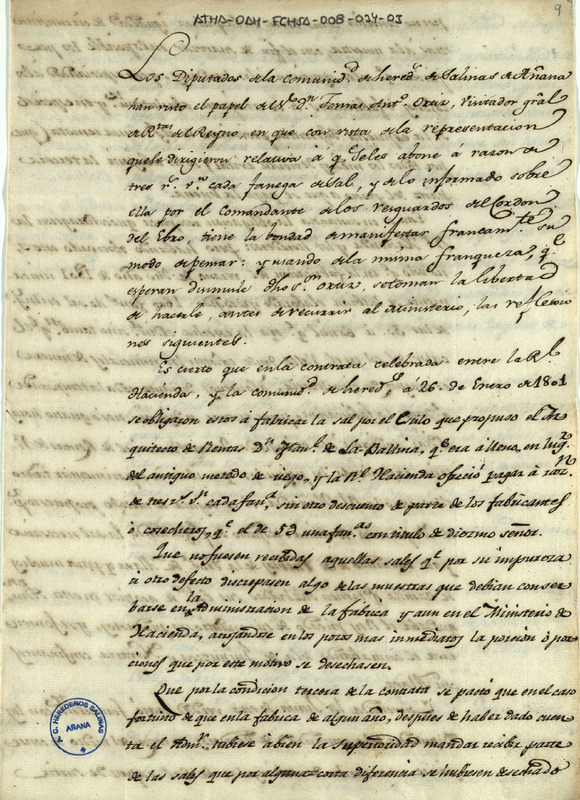 ATHA-DAH-FCHSA-008-034-03
9
Los Diputados de la comunid.d de hered.s de Salinas de Añana
han visto el papel de V. Sr. Dn Tomas Ant.o Ortiz, Visitador gral
de R.tas del Reyno, en que con vista de la representacion
que le dirigieron relativa á q.e se les abone á razon de
tres r.s v.n cada fanega de Sal, y de lo informado sobre
ella por el Comandante de los resguardos del Cordon
del Ebro, tiene la bondad de manifestar francam.te su
modo de pensar: y usando de la misma franqueza, q.e
esperan disimule dho s.or Ortiz, se toman la libertad
de hacerle, antes de recurrir al Ministerio, las reflecsio
nes siguientes.
Es cierto que en la contrata celebrada entre la R.l
Hacienda, y la comunid.d de hered.s á 26 de Enero de 1801
se obligaron estos á fabricar la sal por el Estilo que propuso el Ar
quitecto de Rentas Dn Man.l de La Ballina, q.e era á lleno, en lug.r
del antiguo metodo de riego, y la R.l Hacienda ofreció pagar á razon
de tres r.s v.n cada fan.a sin otro descuento de parte de los fabricantes
ó cosecheros, q.e el de 53 una fan.as con titulo de diezmo señor.
Que no fuesen recibidas aquellas sales q.e por su impureza
ú otro defecto discrepasen algo de las muestras que debian conser
barse en la Administracion de la fabrica y aun en el Ministerio de
Hacienda, arrojandose en los pozos mas inmediatos la porsión ó por
ciones que por este motivo se desechasen.
Que por la condicion tercera de la contrata se pactó que en el caso
fortuito de que en la fabrica de algun año, despues de haber dado cuen
ta el Adm.r tubiese á bien la Superioridad mandar recibir parte
de las sales que por alguna corta diferencia se hubiesen desechado
C. HEREDEROS SALINAS
AÑANA